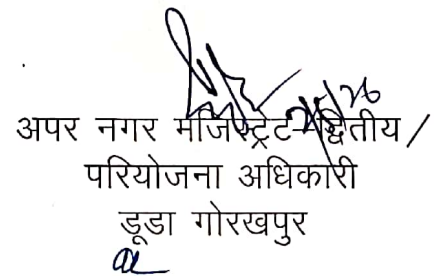 अपर नगर मजिस्ट्रेट-द्वितीय/
परियोजना अधिकारी
डूडा गोरखपुर